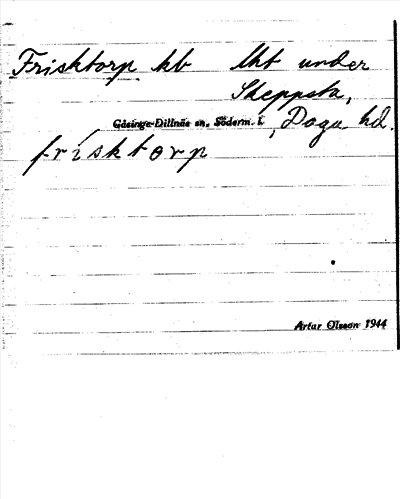 Frisktorp kb lht under
Skeppsta,
Gåsinge-Dillnäs sn, Söderm. l. , Daga hd.
frisktorp
Artur Olsson 1944